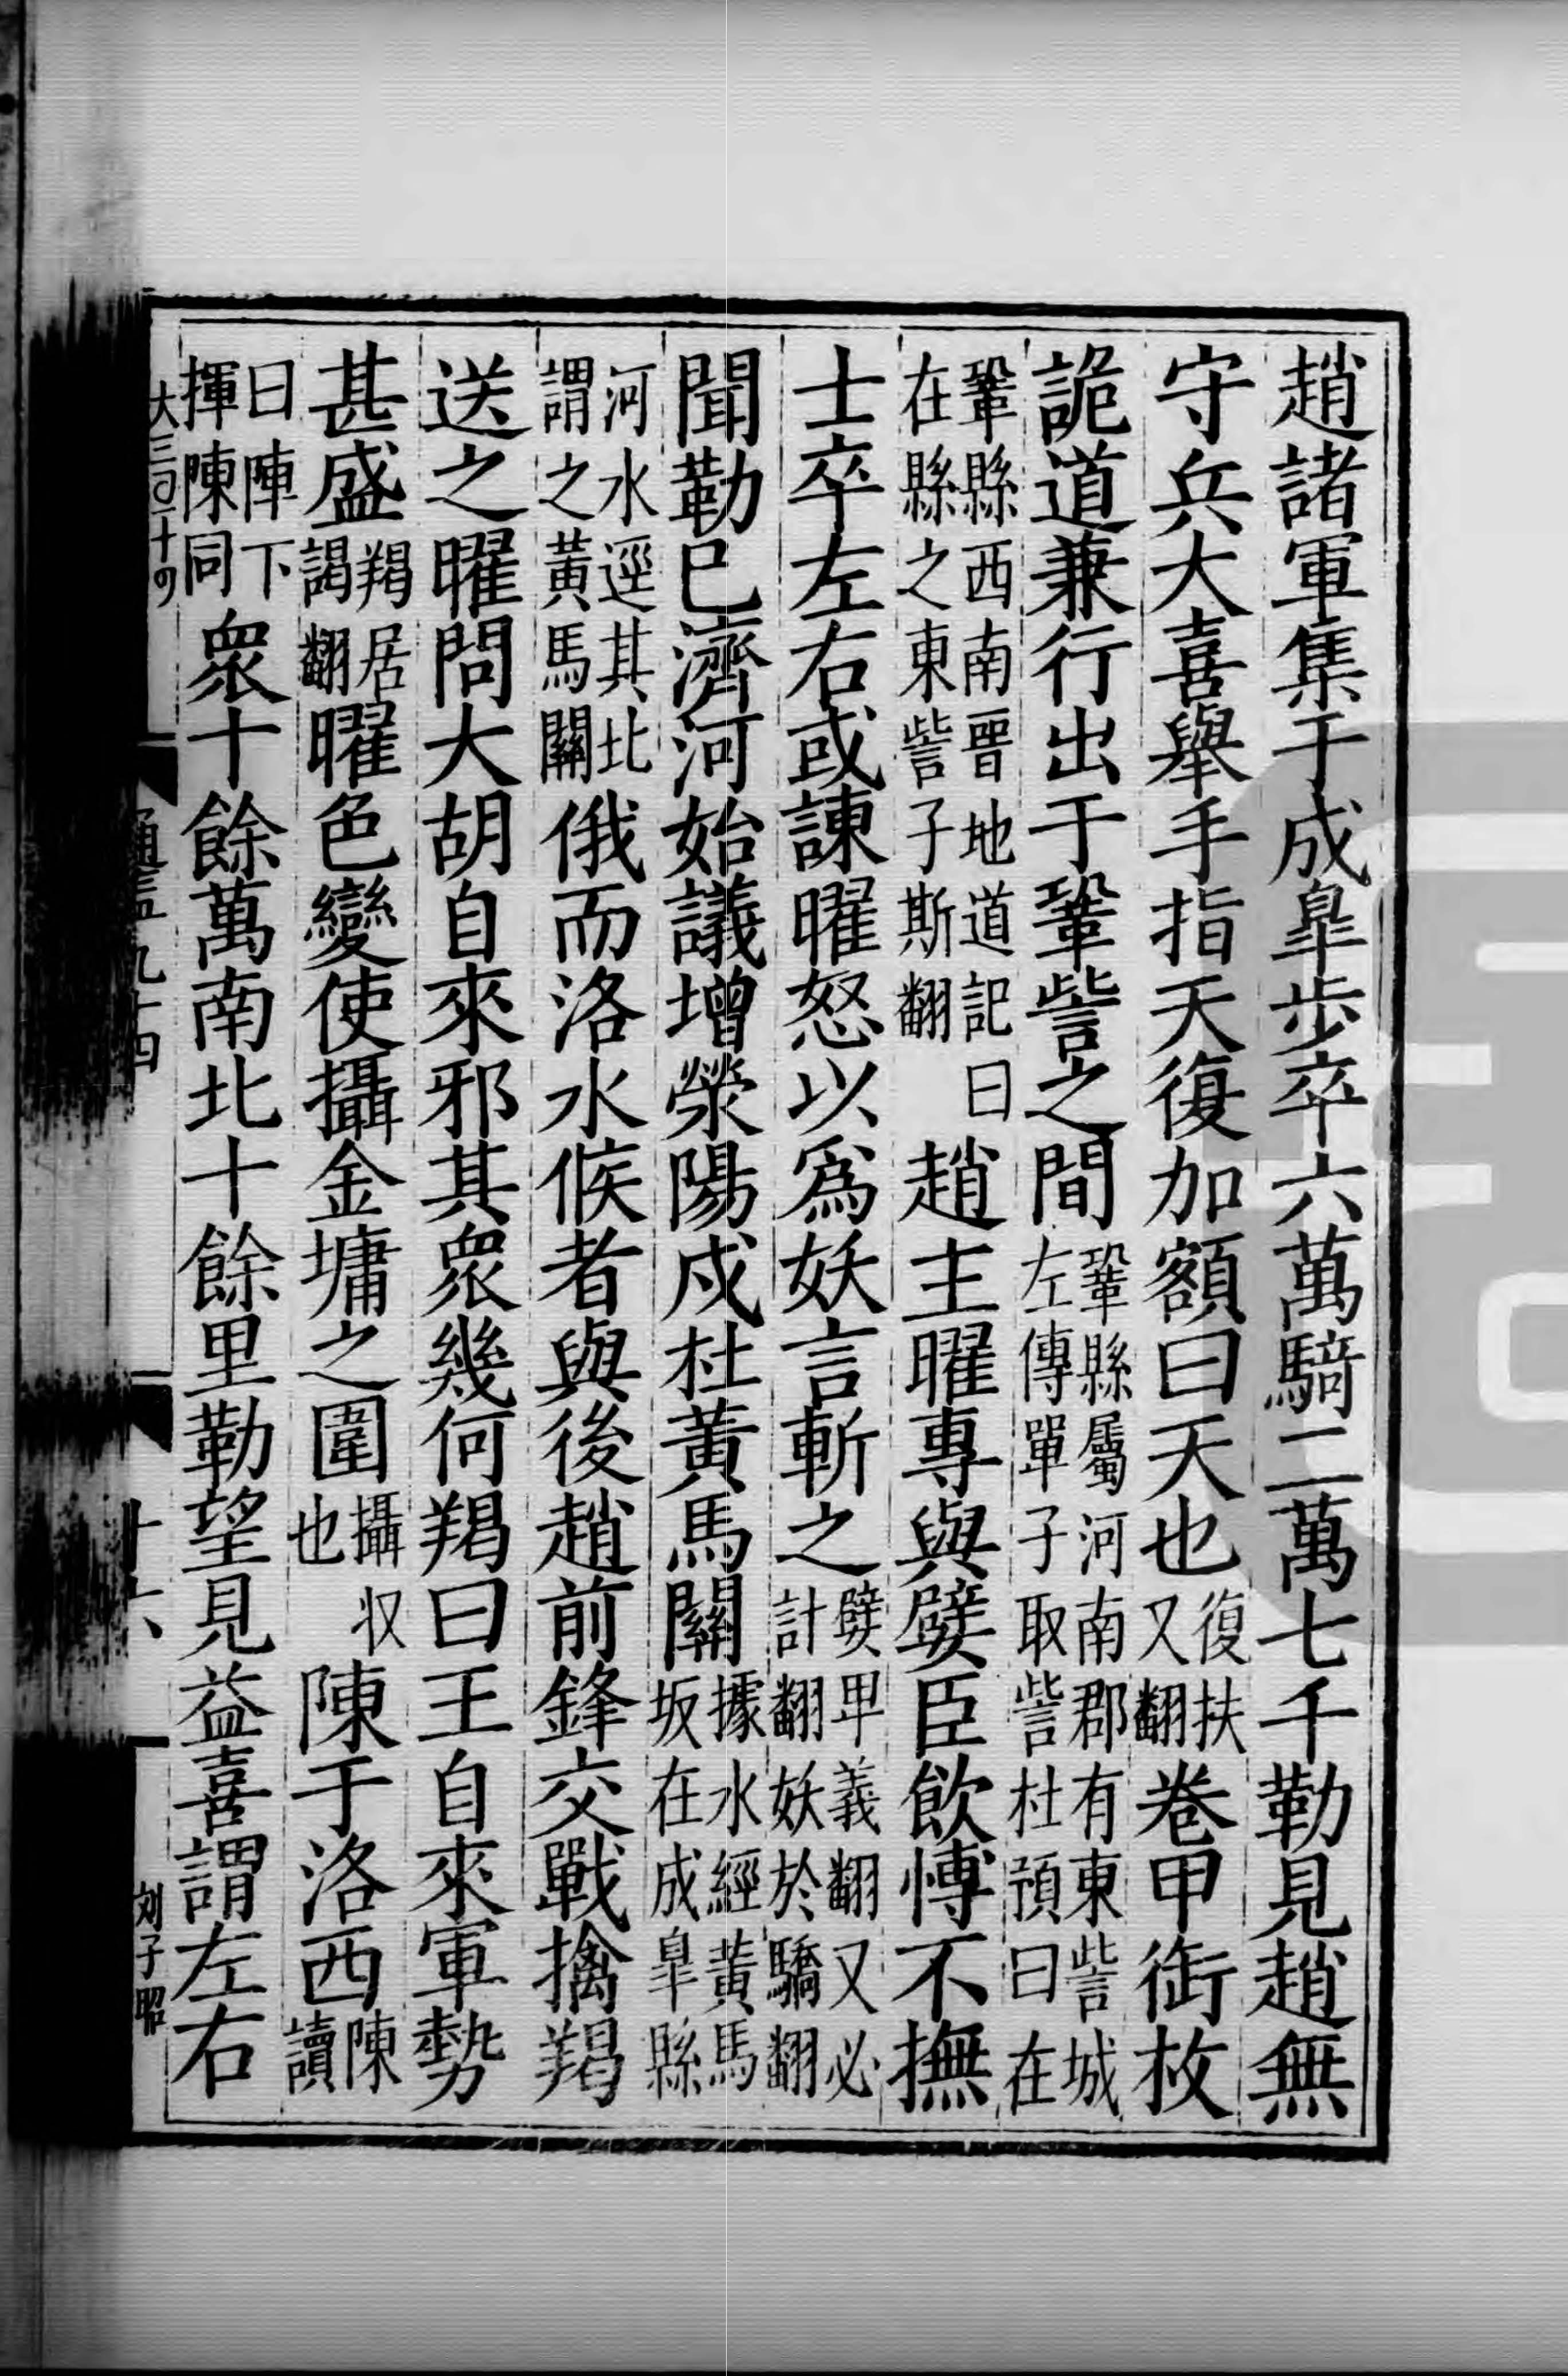 趙諸軍集于成皐步卒六萬騎二萬七千勒見趙無
守兵大喜舉手指天復加額曰天也復扶又翻卷甲銜枚
詭道兼行出于鞏訾之間鞏縣屬河南郡有東訾城左傳單子取訾杜預曰在
鞏縣西南晉地道記曰在縣之東訾子斯翻趙主曜專與嬖臣飲博不撫
士卒左右或諫曜怒以爲妖言斬之嬖卑義翻又必計翻妖於驕翻
聞勒已濟河始議增滎陽戍杜黃馬關據水經黃馬坂在成皐縣
河水逕其北謂之黃馬關俄而洛水候者與後趙前鋒交戰擒羯
送之曜問大胡自來邪其衆幾何羯曰王自來軍勢
甚盛羯居謁翻曜色變使攝金墉之圍攝收也陳于洛西陳讀
曰陣下揮陳同衆十餘萬南北十餘里勒望見益喜謂左右
大三百二十四
通鑑九十四
十六
刘子昭